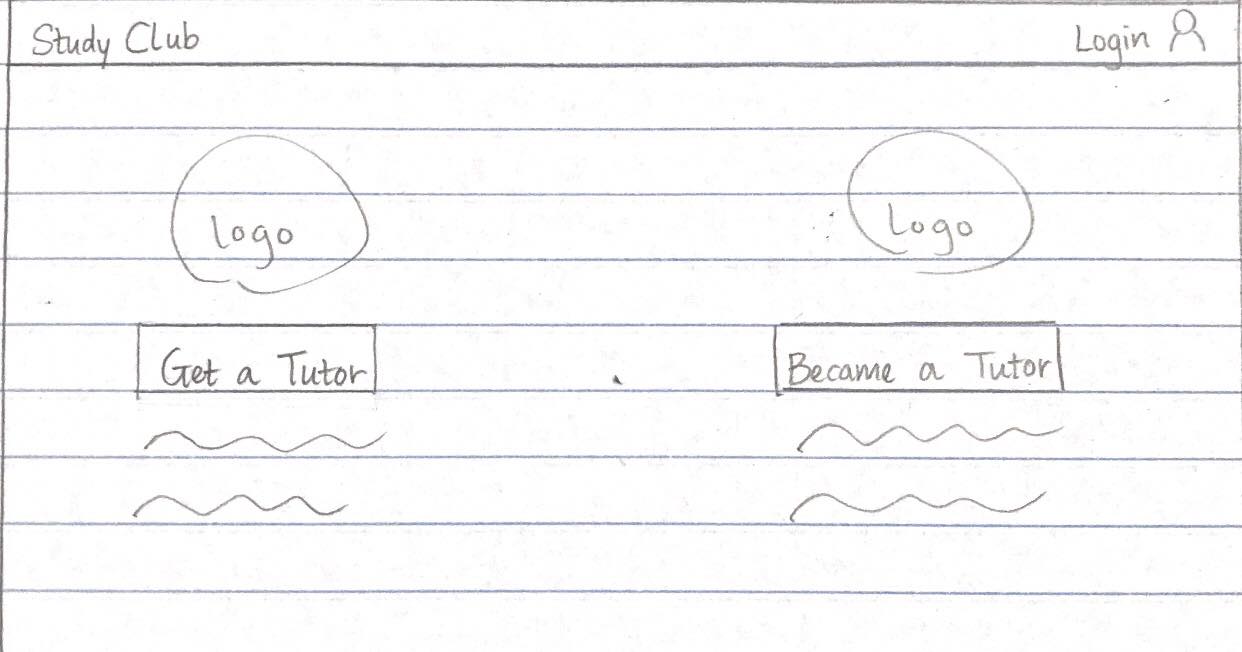 Study Club
Login
Logo
Logo
Get a Tutor
Became a Tutor